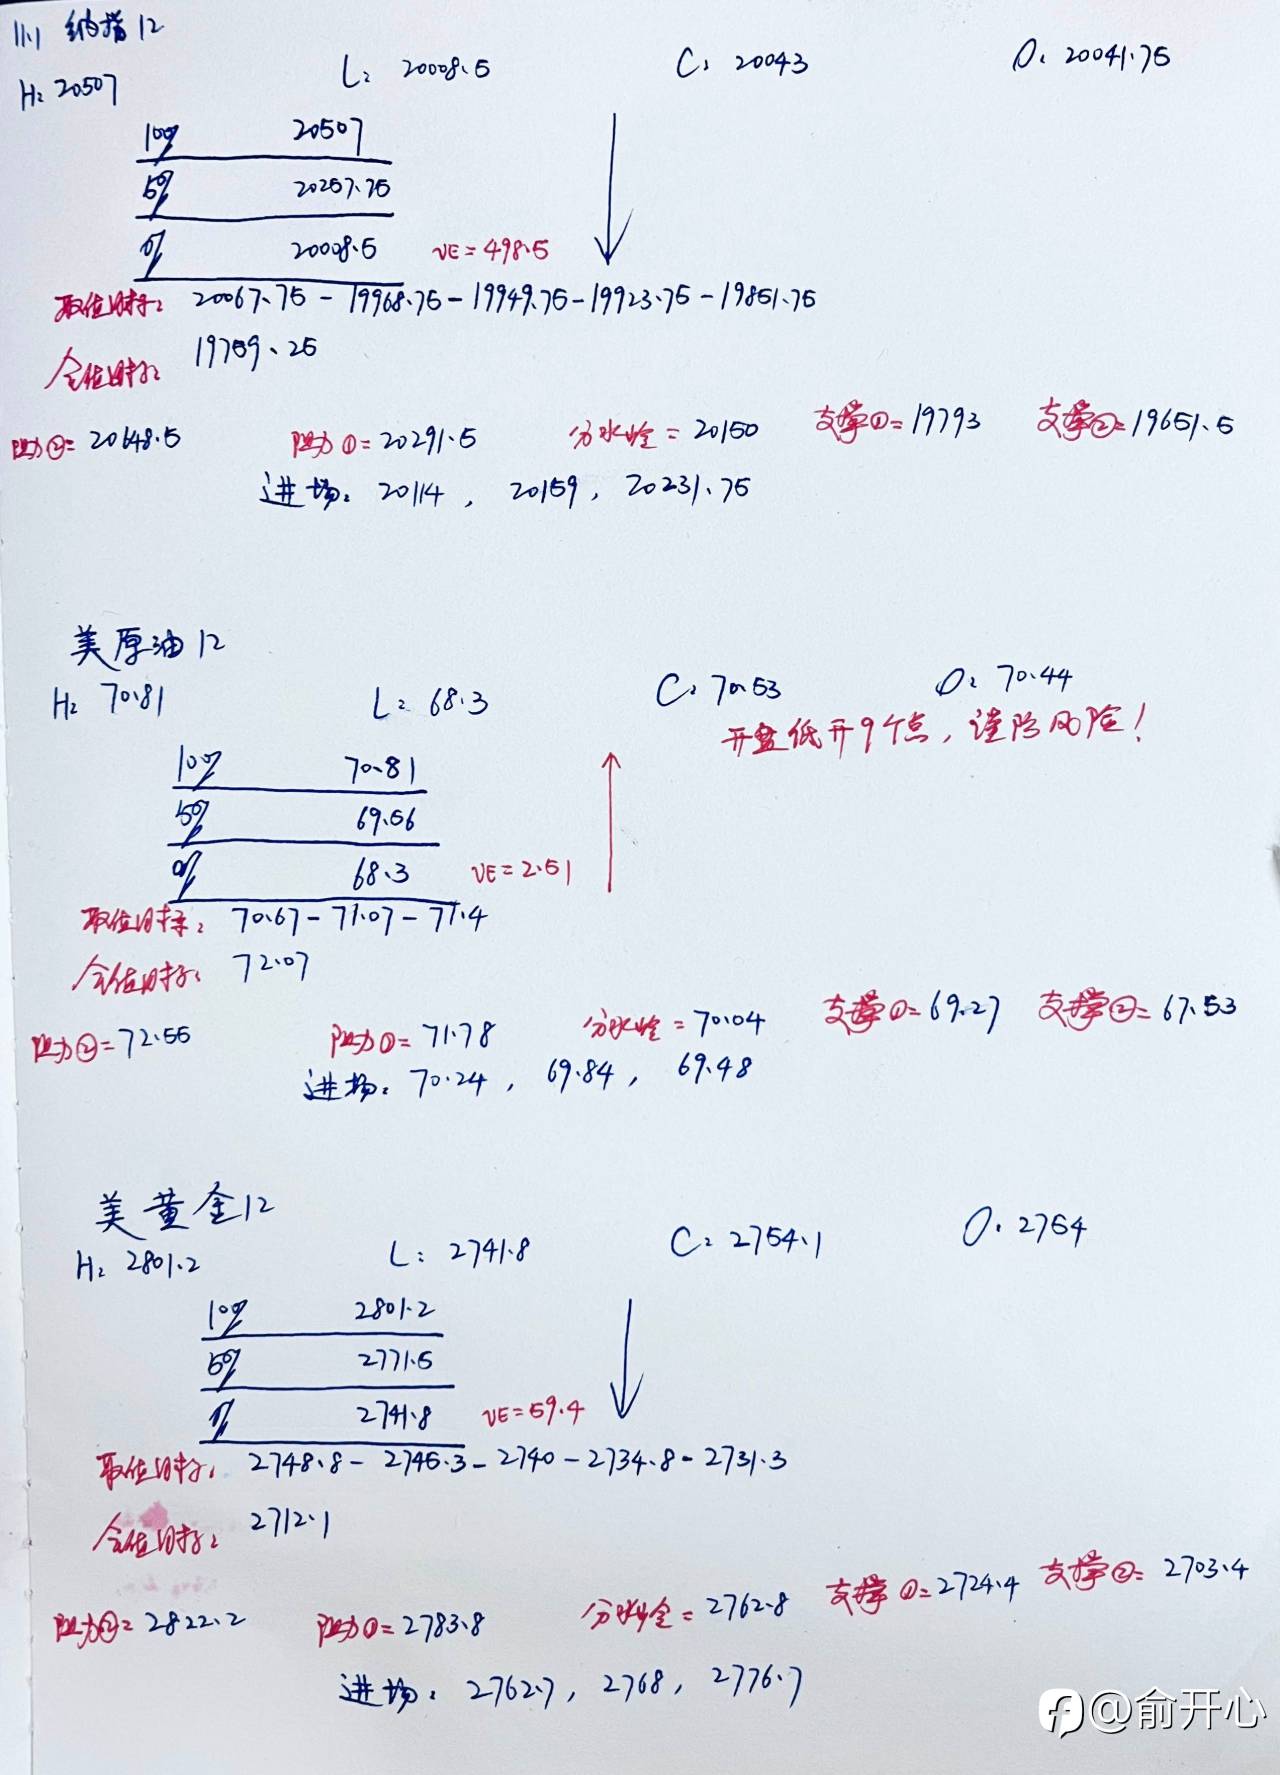 11.1 纳指12
H: 20507 L: 20008.5 C: 20043 O: 20041.75
100% 20507
50% 20257.75
0% 20008.5 VE=498.5
取值目标: 20067.75-19968.75-19949.75-19923.75-19851.75
全值目标: 19759.25
阻力②=20648.5 阻力①=20291.5 分水岭=20150 支撑①=19793 支撑②=19651.5
进场: 20114, 20159, 20231.75
美原油12
H: 70.81 L: 68.3 C: 70.53 O: 70.44
开盘低开9个点,谨防风险!
100% 70.81
50% 69.56
0% 68.3 VE=2.51
取值目标: 70.67-71.07-71.4
全值目标: 72.07
阻力②=72.55 阻力①=71.78 分水岭=70.04 支撑①=69.27 支撑②=67.53
进场: 70.24, 69.84, 69.48
美黄金12
H: 2801.2 L: 2741.8 C: 2754.1 O: 2754
100% 2801.2
50% 2771.5
0% 2741.8 VE=59.4
取值目标: 2748.8-2745.3-2740-2734.8-2731.3
全值目标: 2712.1
阻力②=2822.2 阻力①=2783.8 分水岭=2762.8 支撑①=2724.4 支撑②=2703.4
进场: 2762.7, 2768, 2776.7
@俞开心